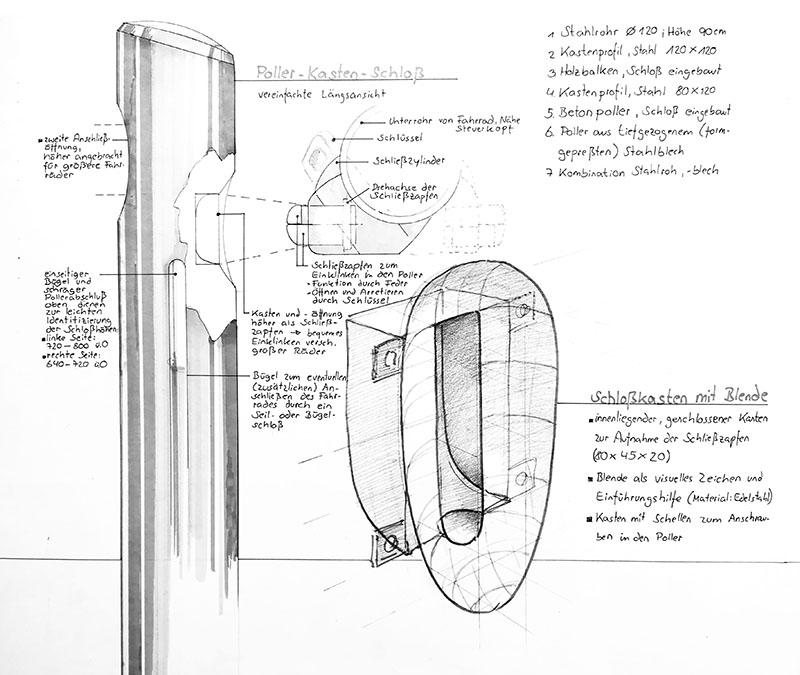 Poller-Kasten-Schloß
vereinfachte Längsansicht
1 Stahlrohr Ø 120 ; Höhe 90cm
2 Kastenprofil, Stahl 120 × 120
3 Holzbalken, Schloß eingebaut
4. Kastenprofil, Stahl 80 × 120
5. Betonpoller, Schloß eingebaut
6. Poller aus tiefgezogenem (form-
gepreßten) Stahlblech
7 Kombination Stahlroh, -blech
Unterrohr von Fahrrad, Nähe
Steuerkopf
Schlüssel
Schließzylinder
Drehachse der
Schließzapfen
▪ zweite Anschließ-
öffnung,
höher angebracht
für größere Fahr-
räder
einseitiger
Bügel und
schräger
Pollerabschluß
oben dienen
zur leichten
Identifizierung
der Schloßhöhen:
▪ linke Seite:
720-800 ü.0
▪ rechte Seite:
640-720 ü0
Schließzapfen zum
Einklinken in den Poller
- Funktion durch Feder
- Öffnen und Arretieren
durch Schlüssel
Kasten und -öffnung
höher als Schließ-
zapfen → bequemes
Einklinken versch.
großer Räder
Bügel zum eventuellen
(zusätzlichen) An-
schließen des Fahr-
rades durch ein
Seil- oder Bügel-
schloß
Schloßkasten mit Blende
▪ innenliegender, geschlossener Kasten
zur Aufnahme der Schließzapfen
(80 × 45 × 20)
▪ Blende als visuelles Zeichen und
Einführungshilfe (Material: Edelstahl)
▪ Kasten mit Schellen zum Anschrau-
ben in den Poller